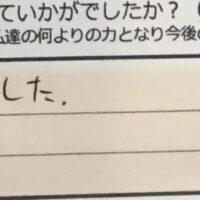 ていかがでしたか？（
達の何よりの力となり今後の
した.